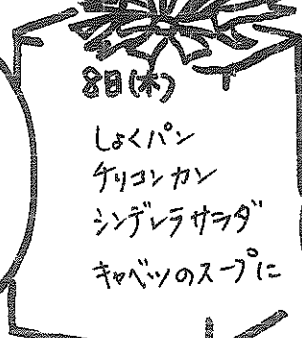 8日(木)
しょくパン
チリコンカン
シンデレラサラダ
キャベツのスープに